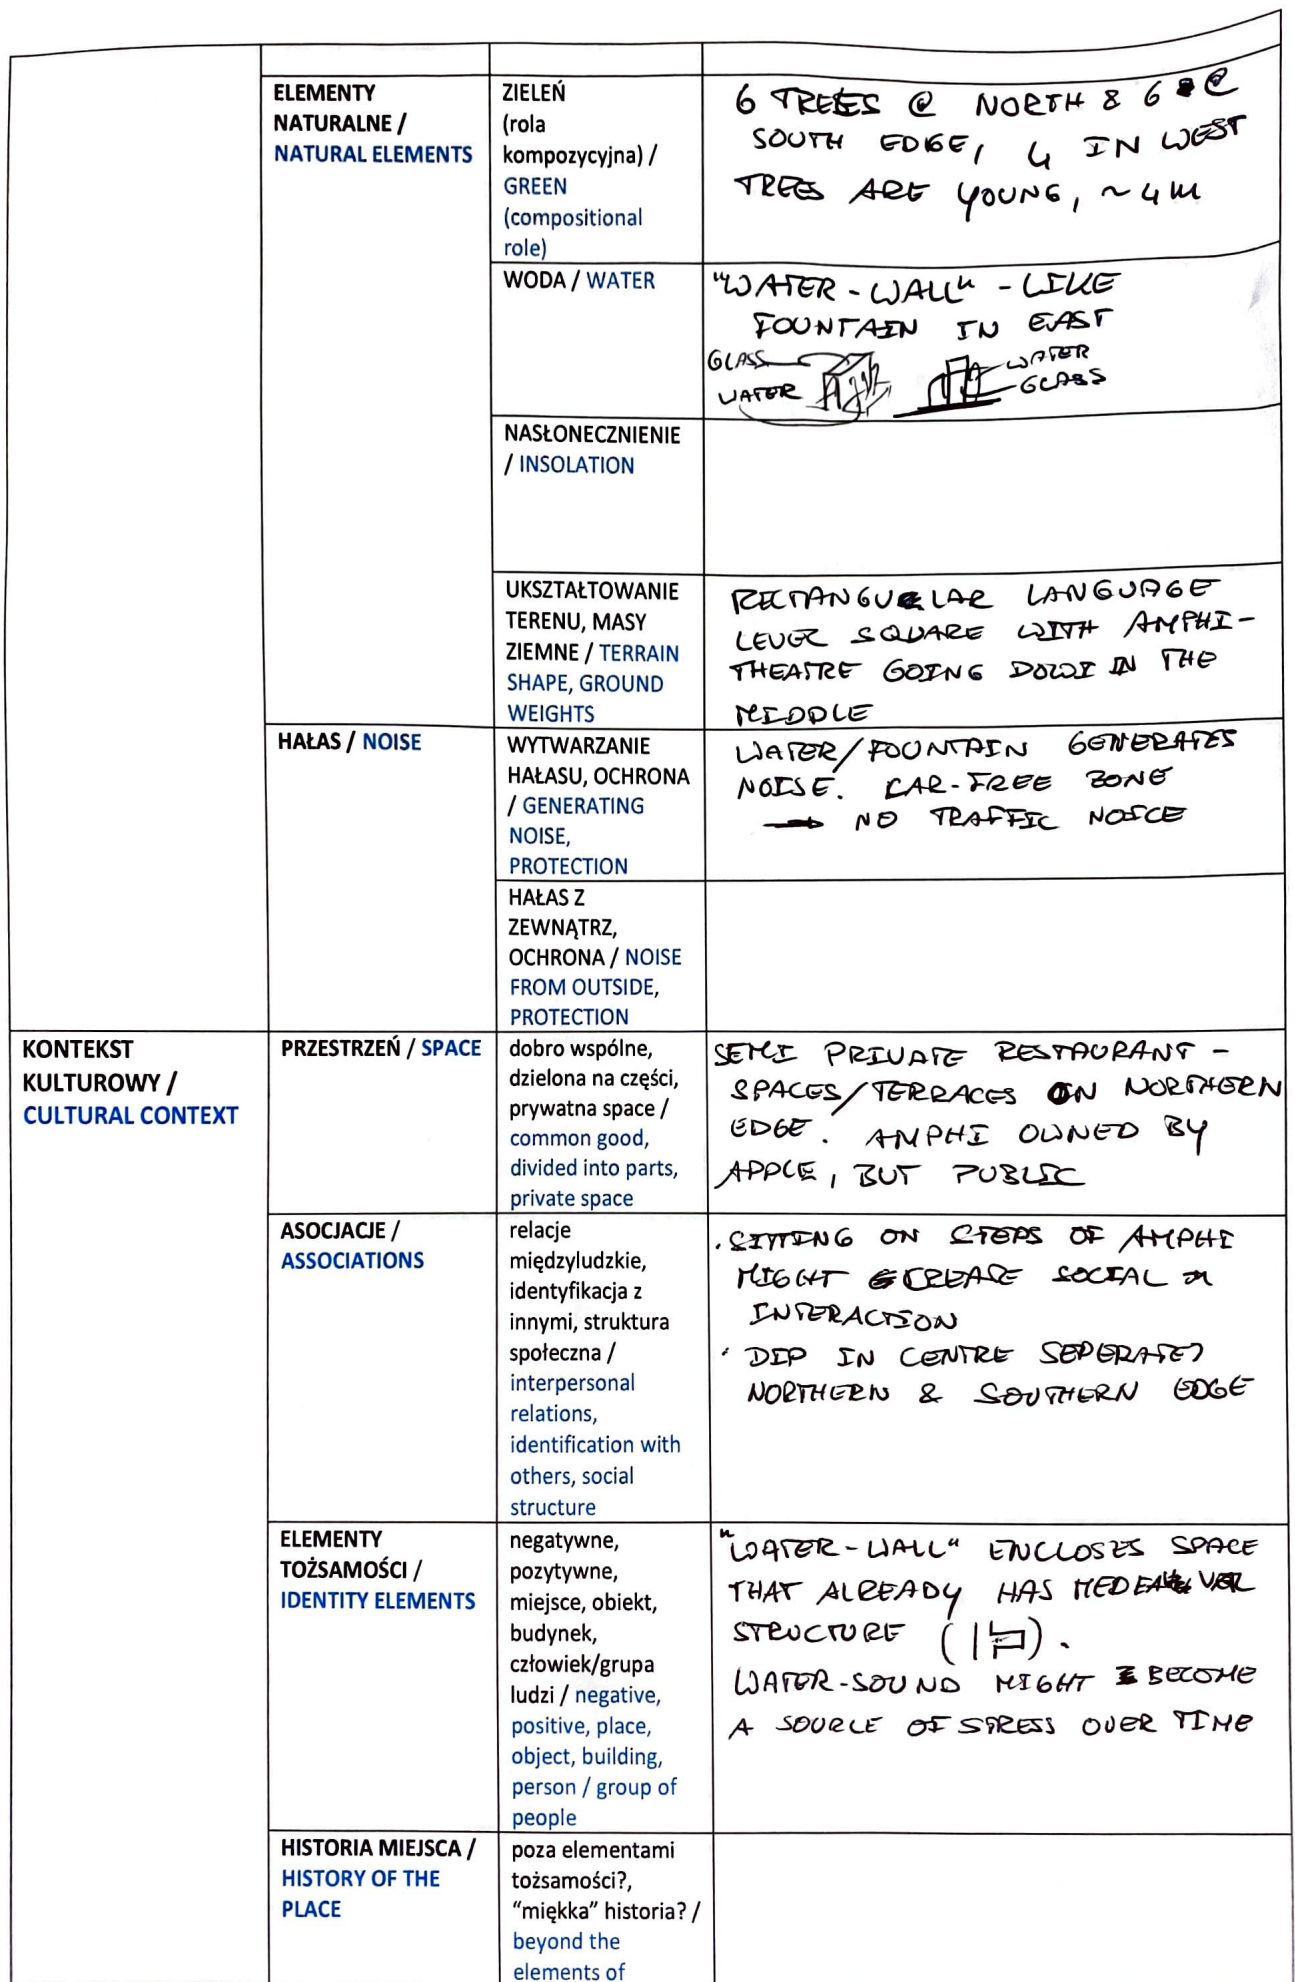 ELEMENTY
NATURALNE /
NATURAL ELEMENTS
ZIELEŃ
(rola
kompozycyjna) /
GREEN
(compositional
role)
6 TREES @ NORTH & 6 @
SOUTH EDGE, 4 IN WEST
TREES ARE YOUNG, ~4M
WODA / WATER
"WATER-WALL" - LIKE
FOUNTAIN IN EAST
GLASS
WATER
WATER
GLASS
NASŁONECZNIENIE
/ INSOLATION
UKSZTAŁTOWANIE
TERENU, MASY
ZIEMNE / TERRAIN
SHAPE, GROUND
WEIGHTS
RECTANGULAR LANGUAGE
LEVEL SQUARE WITH AMPHI-
THEATRE GOING DOWN IN THE
MIDDLE
HAŁAS / NOISE
WYTWARZANIE
HAŁASU, OCHRONA
/ GENERATING
NOISE,
PROTECTION
WATER/FOUNTAIN GENERATES
NOISE. CAR-FREE ZONE
→ NO TRAFFIC NOICE
HAŁAS Z
ZEWNĄTRZ,
OCHRONA / NOISE
FROM OUTSIDE,
PROTECTION
KONTEKST
KULTUROWY /
CULTURAL CONTEXT
PRZESTRZEŃ / SPACE
dobro wspólne,
dzielona na części,
prywatna space /
common good,
divided into parts,
private space
SEMI PRIVATE RESTAURANT -
SPACES/TERRACES ON NORTHERN
EDGE. AMPHI OWNED BY
APPLE, BUT PUBLIC
ASOCJACJE /
ASSOCIATIONS
relacje
międzyludzkie,
identyfikacja z
innymi, struktura
społeczna /
interpersonal
relations,
identification with
others, social
structure
· SITTING ON STEPS OF AMPHI
MIGHT CREASE SOCIAL
INTERACTION
· DIP IN CENTRE SEPERATES
NORTHERN & SOUTHERN EDGE
ELEMENTY
TOŻSAMOŚCI /
IDENTITY ELEMENTS
negatywne,
pozytywne,
miejsce, obiekt,
budynek,
człowiek/grupa
ludzi / negative,
positive, place,
object, building,
person / group of
people
"WATER-WALL" ENCLOSES SPACE
THAT ALREADY HAS
STRUCTURE ( ).
WATER-SOUND MIGHT BECOME
A SOURCE OF STRESS OVER TIME
HISTORIA MIEJSCA /
HISTORY OF THE
PLACE
poza elementami
tożsamości?,
"miękka" historia? /
beyond the
elements of